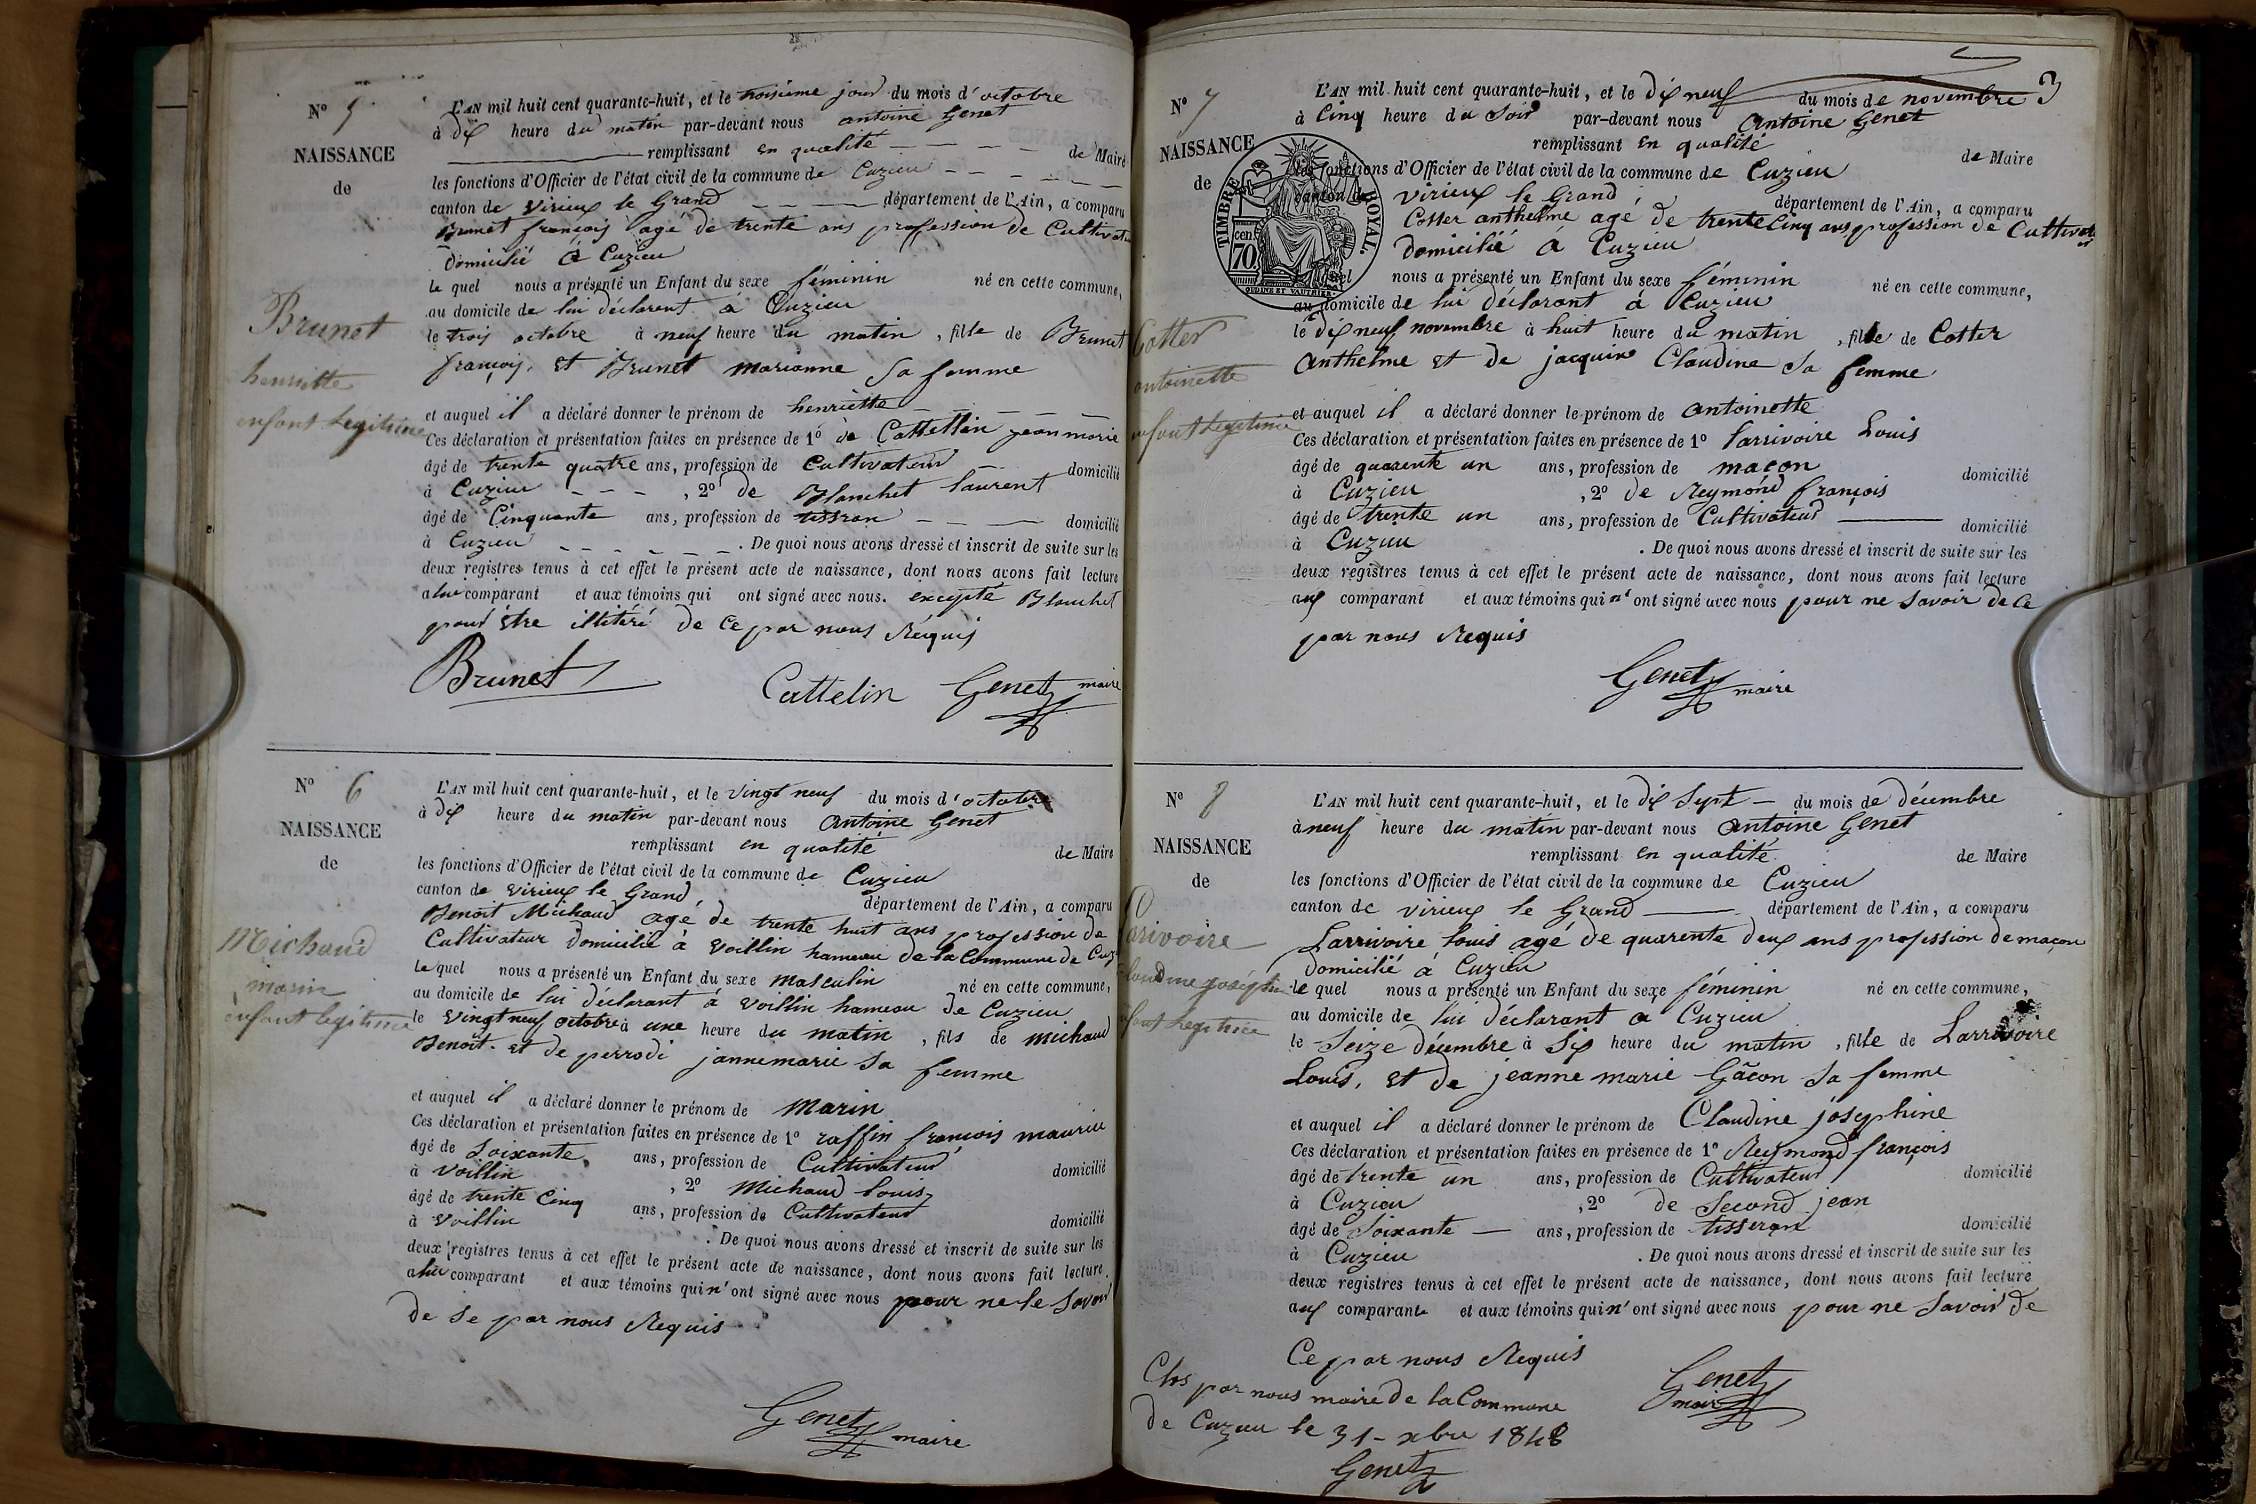 N° 5
NAISSANCE
de
Brunet
henriette
enfant legitime
L'AN mil huit cent quarante-huit, et le troisieme jour du mois d'octobre
à dix heure du matin par-devant nous antoine Genet
remplissant en qualité de Maire
les fonctions d'Officier de l'état civil de la commune de Cuzieu
canton de virieux le Grand département de l'Ain, a comparu
Brunet françois agé de trente ans profession de Cultivateur
domicilié à Cuzieu
le quel nous a présenté un Enfant du sexe féminin né en cette commune,
au domicile de lui déclarent à Cuzieu
le trois octobre à neuf heure du matin, fille de Brunet
françois, et Brunet marianne sa femme
et auquel il a déclaré donner le prénom de henriette
Ces déclaration et présentation faites en présence de 1° de Cattellin jean marie
âgé de trente quatre ans, profession de Cultivateur domicilié
à Cuzieu, 2° de Blanchet laurent
âgé de Cinquante ans, profession de tissran domicilié
à Cuzieu. De quoi nous avons dressé et inscrit de suite sur les
deux registres tenus à cet effet le présent acte de naissance, dont nous avons fait lecture
a lui comparant et aux témoins qui ont signé avec nous. excepté Blanchet
pour être illitéré de Ce par nous Réquis
Brunet Cattelin Genet maire
N° 6
NAISSANCE
de
Michaud
marin
enfant legitime
L'AN mil huit cent quarante-huit, et le vingt neuf du mois d'octobre
à dix heure du matin par-devant nous antoine Genet
remplissant en qualité de Maire
les fonctions d'Officier de l'état civil de la commune de Cuzieu
canton de virieux le Grand département de l'Ain, a comparu
Benoit Michaud agé de trente huit ans profession de
Cultivateur domicilié à voillin hameau de la Commune de Cuz
le quel nous a présenté un Enfant du sexe masculin né en cette commune,
au domicile de lui déclarant à voillin hameau de Cuzieu
le vingt neuf octobre à une heure du matin, fils de michaud
Benoit. et de perrodi jannemarie sa femme
et auquel il a déclaré donner le prénom de marin
Ces déclaration et présentation faites en présence de 1° raffin françois maurice
âgé de soixante ans, profession de Cultivateur domicilié
à voillin, 2° Michaud louis
âgé de trente Cinq ans, profession de Cultivateur domicilié
à voillin. De quoi nous avons dressé et inscrit de suite sur les
deux registres tenus à cet effet le présent acte de naissance, dont nous avons fait lecture
a lui comparant et aux témoins qui n'ont signé avec nous pour ne le savoir
de se par nous Requis
Genet maire
3
N° 7
NAISSANCE
de
TIMBRE ROYAL.
70 cen.
OUDINE ET VAUTHIER
Cotter
antoinette
enfant legitime
L'AN mil huit cent quarante-huit, et le dix neuf du mois de novembre
à Cinq heure du Soir par-devant nous Antoine Genet
remplissant en qualité de Maire
les fonctions d'Officier de l'état civil de la commune de Cuzieu
canton de virieux le Grand département de l'Ain, a comparu
Cotter anthelme agé de trente Cinq ans, profession de Cultivat
domicilié à Cuzieu
le quel nous a présenté un Enfant du sexe féminin né en cette commune,
au domicile de lui déclarant à Cuzieu
le dix neuf novembre à huit heure du matin, fille de Cotter
Anthelme et de jacquin Claudine sa femme
et auquel il a déclaré donner le prénom de antoinette
Ces déclaration et présentation faites en présence de 1° larrivoire Louis
âgé de quarente un ans, profession de maçon domicilié
à Cuzieu, 2° de Reymond françois
âgé de trente un ans, profession de Cultivateur domicilié
à Cuzieu. De quoi nous avons dressé et inscrit de suite sur les
deux registres tenus à cet effet le présent acte de naissance, dont nous avons fait lecture
aux comparant et aux témoins qui n'ont signé avec nous pour ne savoir de Ce
par nous Requis
Genet maire
N° 8
NAISSANCE
de
Larivoire
Claudine joséphine
enfant legitime
L'AN mil huit cent quarante-huit, et le dix Sept du mois de décembre
à neuf heure du matin par-devant nous antoine Genet
remplissant en qualité de Maire
les fonctions d'Officier de l'état civil de la commune de Cuzieu
canton de virieux le Grand département de l'Ain, a comparu
Larrivoire louis agé de quarente deux ans profession de maçon
domicilié à Cuzieu
le quel nous a présenté un Enfant du sexe féminin né en cette commune,
au domicile de lui déclarant a Cuzieu
le Seize décembre à Six heure du matin, fille de Larrivoire
Louis, et de jeanne marie Gâcon sa femme
et auquel il a déclaré donner le prénom de Claudine josephine
Ces déclaration et présentation faites en présence de 1° Reymond françois
âgé de trente un ans, profession de Cultivateur domicilié
à Cuzieu, 2° de Second jean
âgé de Soixante ans, profession de tisseran domicilié
à Cuzieu. De quoi nous avons dressé et inscrit de suite sur les
deux registres tenus à cet effet le présent acte de naissance, dont nous avons fait lecture
aux comparant et aux témoins qui n'ont signé avec nous pour ne savoir de
Ce par nous Requis
Genet maire
Clos par nous maire de la Commune
de Cuzieu le 31 - xbre 1848
Genet